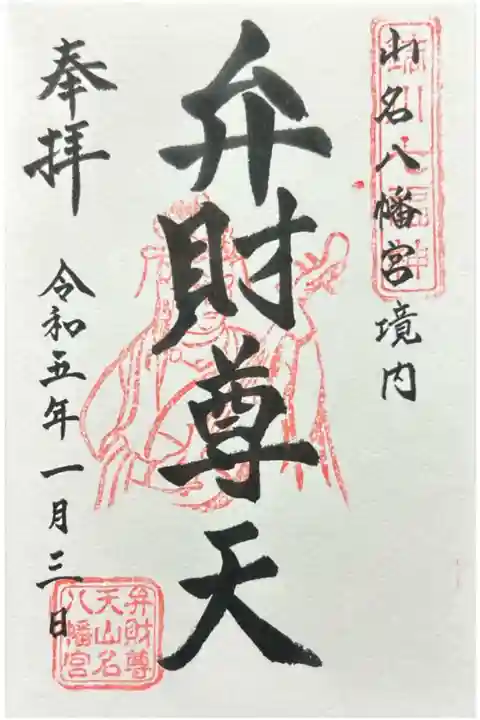 山名八幡宮境内
川七福神
弁財尊天
奉拝
令和五年一月三日
弁財尊
天山名
八幡宮